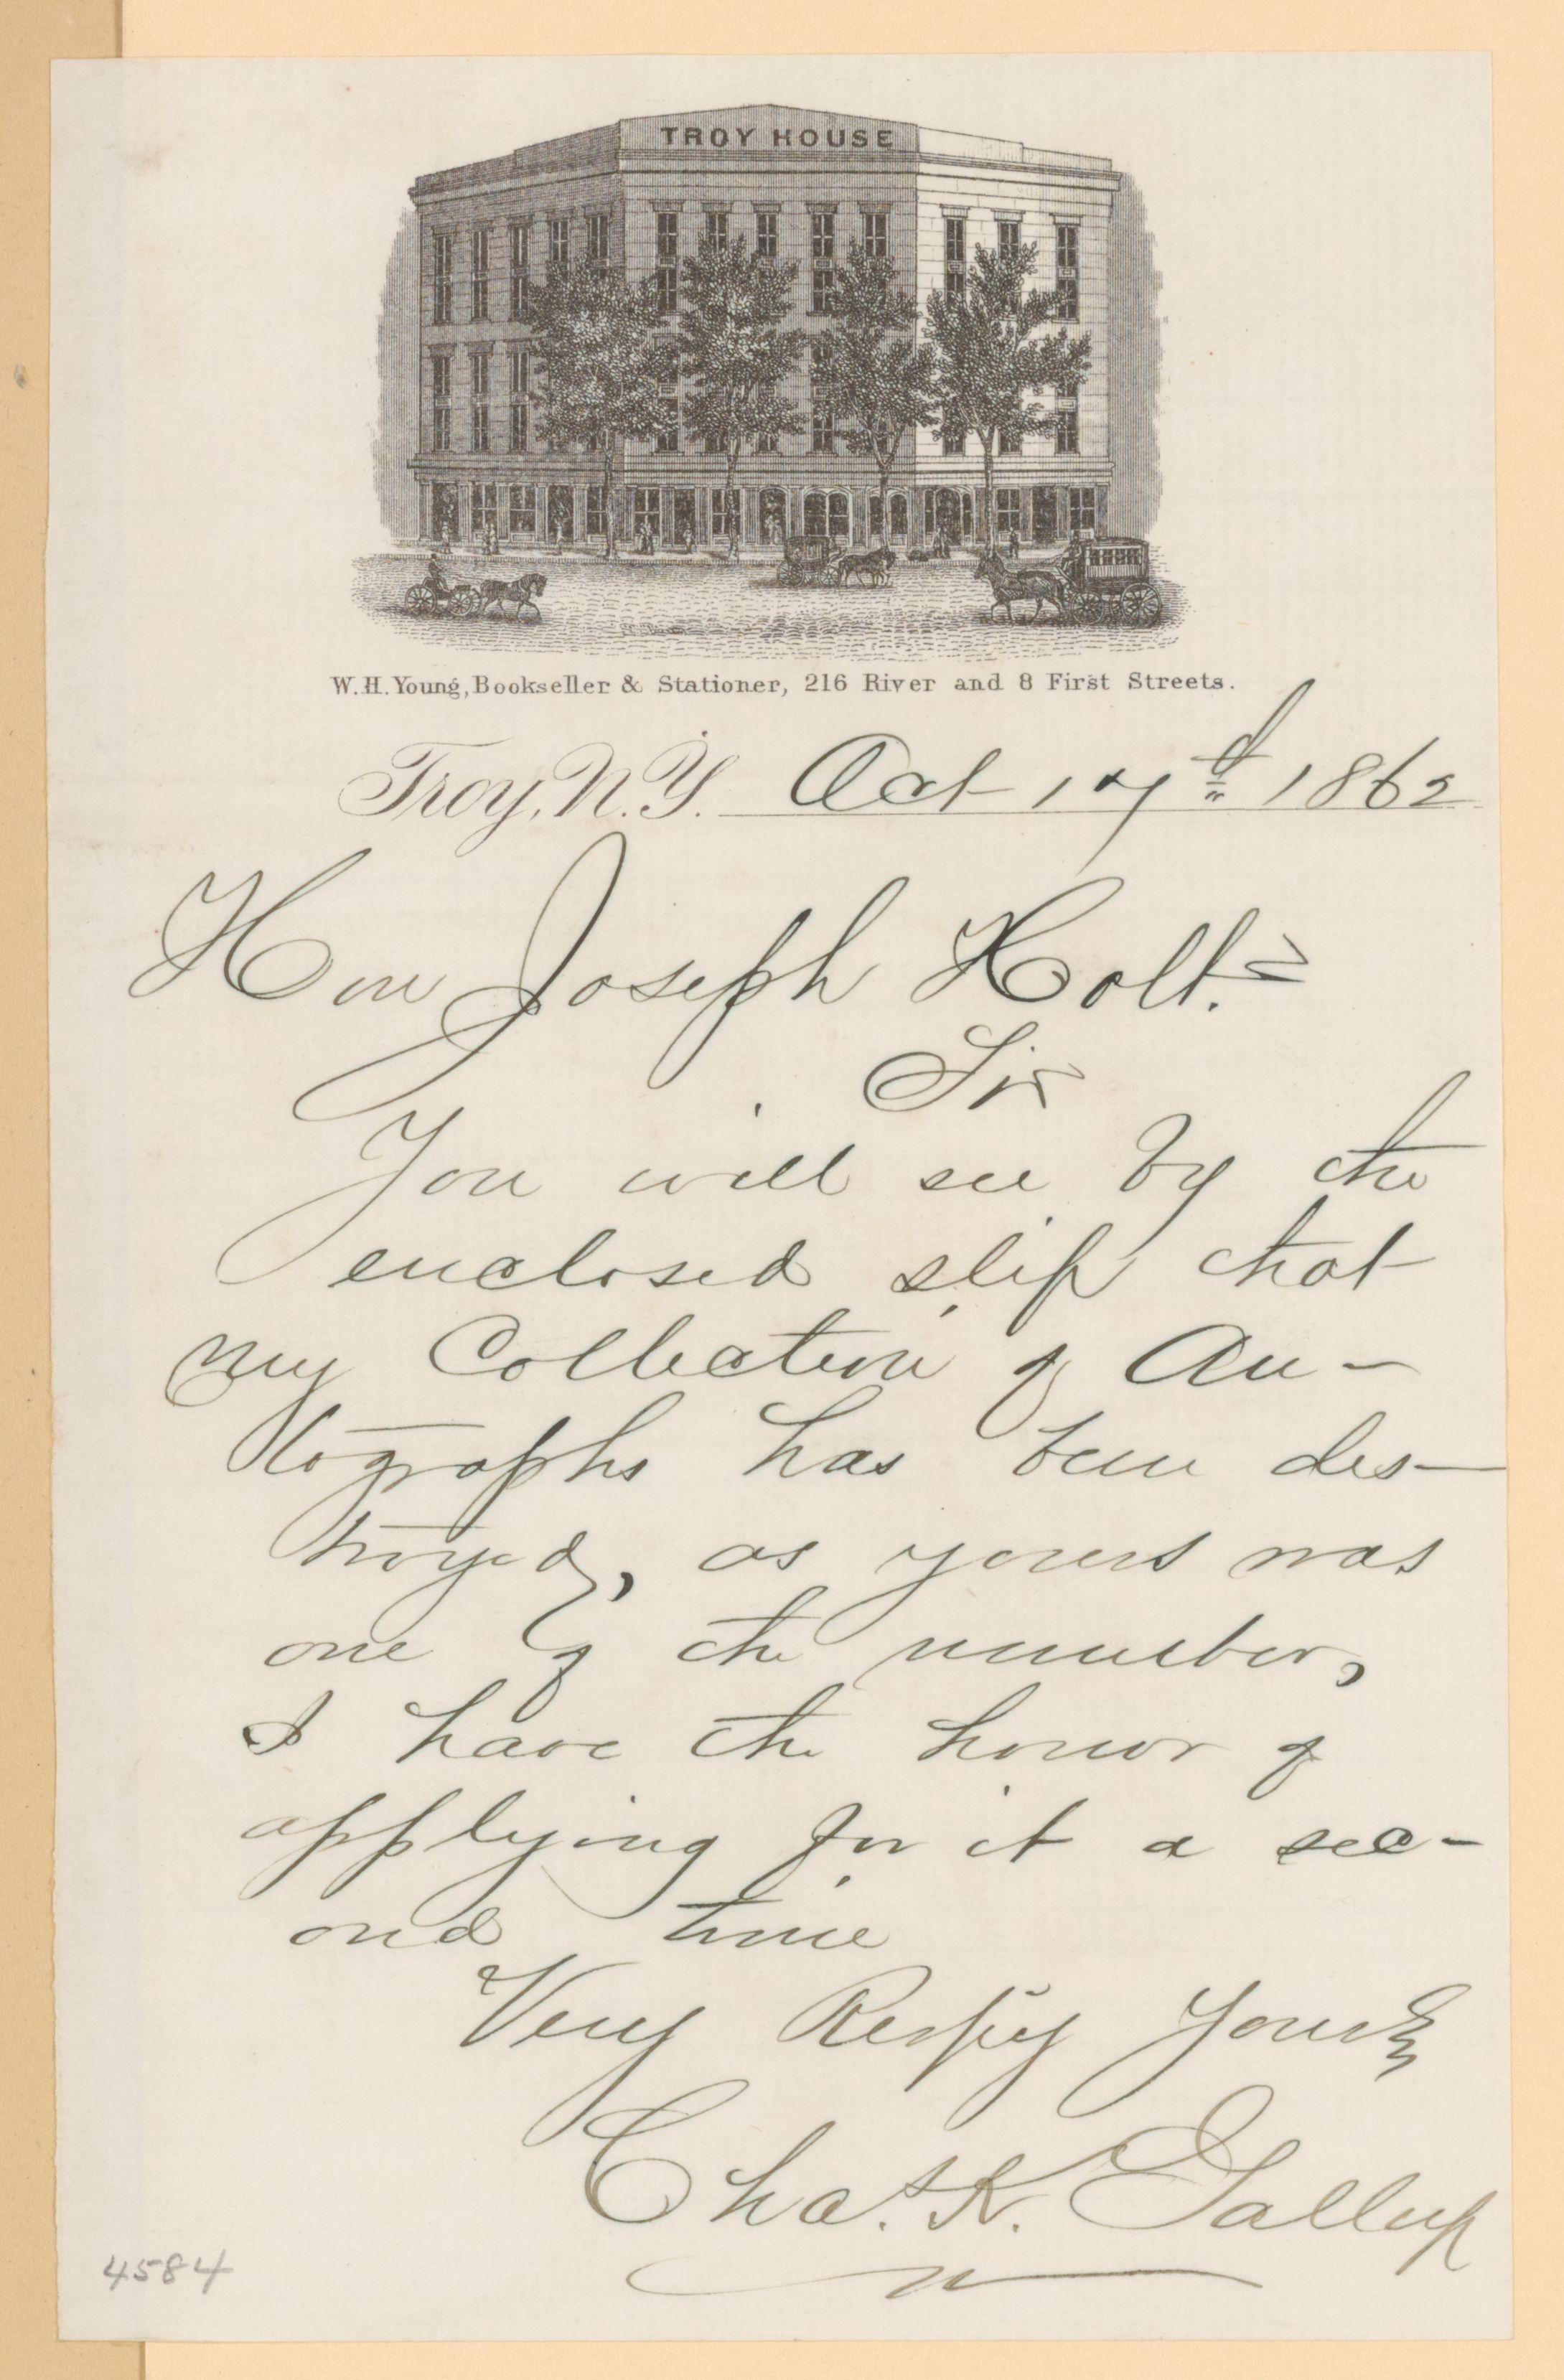 TROY HOUSE
W. H. Young, Bookseller & Stationer, 216 River and 8 First Streets.
Troy, N.Y. Oct 17d 1862
Hon Joseph Holt.=
Sir
You will see by the
enclosed slip that
my Collection of Au-
tographs has been des-
troyed, as yours was
one of the number,
I have the honor of
applying for it a sec-
ond time
Very Respfy Yours
Chas. K. Gallup
4584